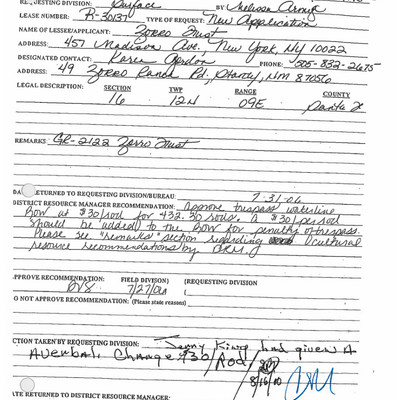 REQUESTING DIVISION: Surface BY Melissa Armijo
LEASE NUMBER: R-30137 TYPE OF REQUEST: New Application
NAME OF LESSEE/APPLICANT: Zorro Trust
ADDRESS: 457 Madison Ave, New York, NY 10022
DESIGNATED CONTACT: Karen Gordon PHONE: 505-832-2675
ADDRESS: 49 Zorro Ranch Rd, Stanley, NM 87056
LEGAL DESCRIPTION: SECTION TWP RANGE COUNTY
16 12N 09E Santa Fe
REMARKS GR-2122 Zorro Trust
DATE RETURNED TO REQUESTING DIVISION/BUREAU: 7-31-06
DISTRICT RESOURCE MANAGER RECOMMENDATION: Approve trespass waterline
Row at $30/rod for 432.30 rods. A $30/per rod
should be added to the Row for penalty of trespass.
Please see "remarks" section regarding cultural
resource recommendations by DRM.
APPROVE RECOMMENDATION: FIELD DIVISION) (REQUESTING DIVISION
7/27/06
DO NOT APPROVE RECOMMENDATION: (Please state reason)
ACTION TAKEN BY REQUESTING DIVISION: Jenny King had given A
Averbal Change $30/Rod
8/16/10
DATE RETURNED TO DISTRICT RESOURCE MANAGER: